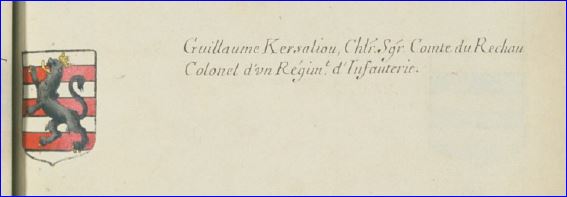 Guillaume Kersaliou, Chlr. Sgr. Comte du Rechau
Colonel d'vn Régimt. d'Infanterie.